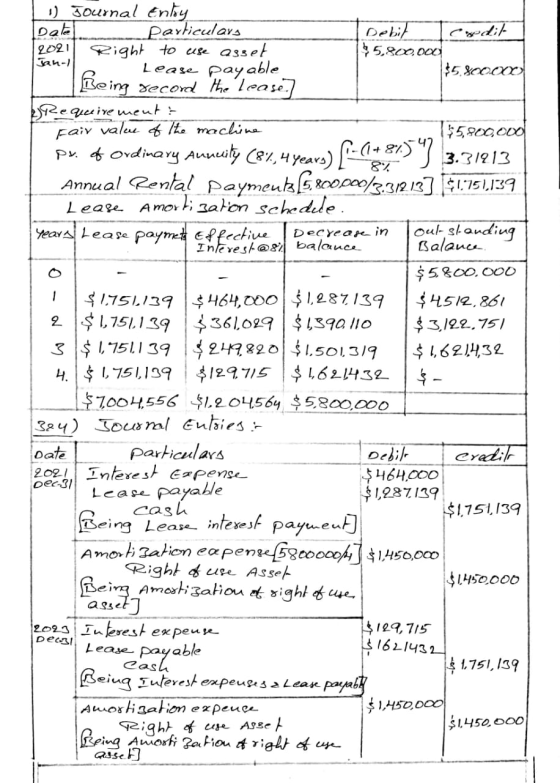 1) Journal Entry
Date Particulars Debit Credit
2021 Right to use asset $5,800,000
Jan-1 Lease payable $5,800,000
[Being record the lease.]
2) Requirement :-
Fair value of the machine $5,800,000
Pv. of Ordinary Annuity (8%, 4 years) [1-(1+8%)^-4 / 8%] 3.31213
Annual Rental Payments [5,800,000/3.31213] $1,751,139
Lease Amortization schedule.
Years Lease payment Effective Interest @8% Decrease in balance Out standing Balance
0 - - - $5,800,000
1 $1,751,139 $464,000 $1,287,139 $4,512,861
2 $1,751,139 $361,029 $1,390,110 $3,122,751
3 $1,751,139 $249,820 $1,501,319 $1,621,432
4. $1,751,139 $129,715 $1,621,432 $-
$7,004,556 $1,204,564 $5,800,000
3&4) Journal Entries :-
Date Particulars Debit Credit
2021 Interest Expense $464,000
Dec-31 Lease payable $1,287,139
Cash $1,751,139
[Being Lease interest payment]
Amortization expense [5800000/4] $1,450,000
Right of use Asset $1,450,000
[Being Amortization of right of use
asset]
2023 Interest expense $129,715
Dec-31 Lease payable $1,621,432
Cash $1,751,139
[Being Interest expenses & Lease payable]
Amortization expence $1,450,000
Right of use Asset $1,450,000
[Being Amortization of right of use
asset]